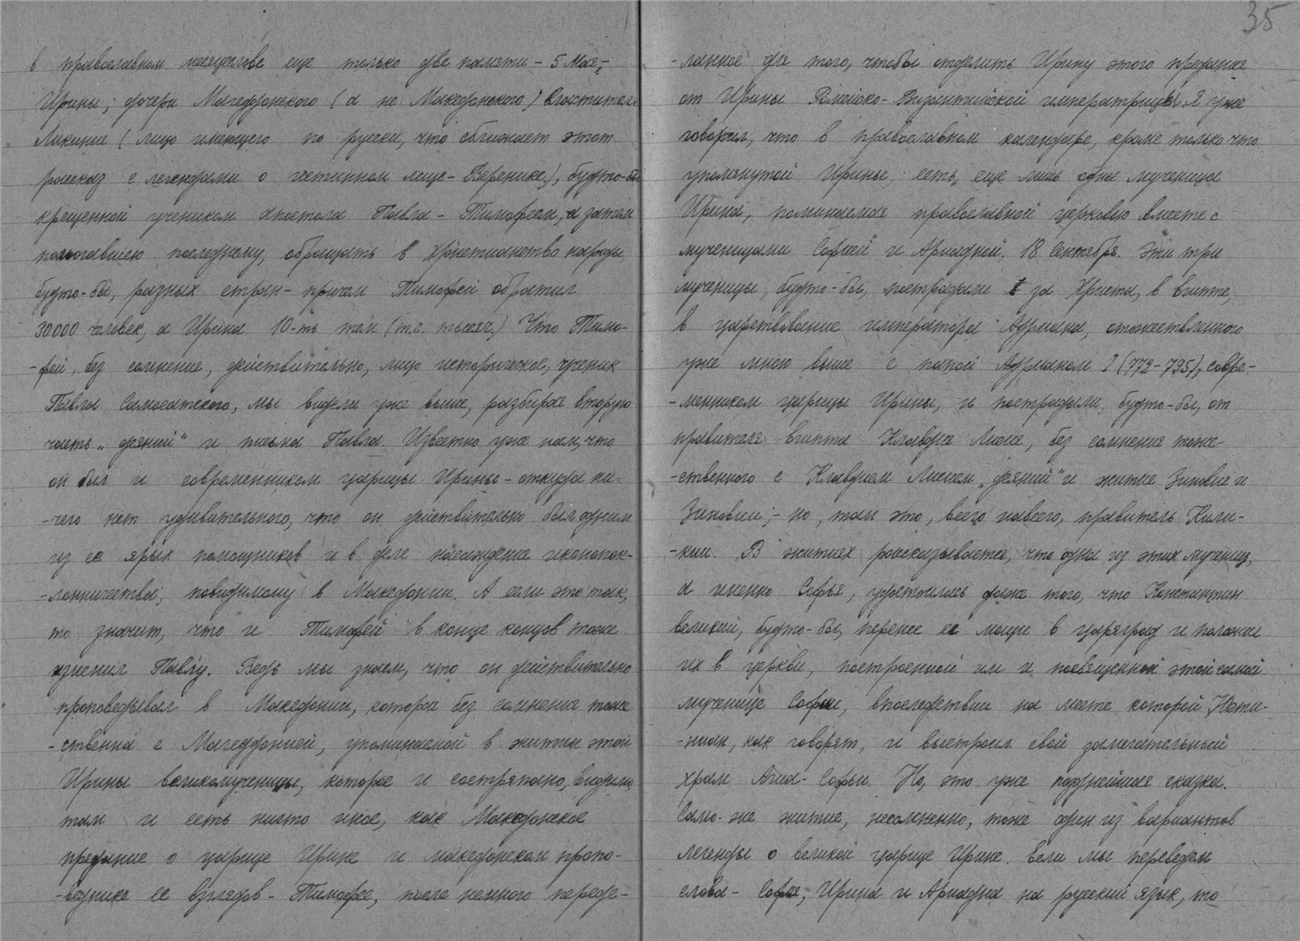 35
в православном месяцслове еще только две памяти - 5 Мая,
Ирины, дочери Магедфонского (а не Македонского) властителя
Ликиния (лицо имеющего по русски, что сближает этот
рассказ с легендами о истинном лице - Веронике), будто-бы
крещенной учеником апостола Павла - Тимофеем, а затем
помогавшею последнему, обращать в христианство народы,
будто-бы, разных стран - причем Тимофей обратил
30000 человек, а Ирина 10-ть тем (т.е. тысяч.) Что Тимо-
-фей, без сомнения, действительно, лицо историческое, ученик
Павла Самосатского, мы видели уже выше, разбирая вторую
часть „деяний" и письма Павла. Известно уже нам, что
он был и современником царицы Ирины - откуда ни-
-чего нет удивительного, что он действительно был одним
из ее ярых помощников и в деле насаждения иконопок-
-лонничества, повидимому в Македонии. А если это так,
то значит, что и Тимофей в конце концов тоже
изменил Павлу. Ведь мы знаем, что он действительно
проповедывал в Македонии, которая без сомнения тоже
-ственна с Магедфонией, упоминаемой в житии этой
Ирины великомученицы, которое и состряпано, видимо
там и есть ничто иное, как Македонское
предание о царице Ирине и македонском пропо-
-веднике ее взглядов - Тимофее, после немного переде-
-ланное для того, чтобы отделить Ирину этого предания
от Ирины Ромейско-Византийской императрицы. Я уже
говорил, что в православном календаре, кроме только что
упомянутой Ирины, есть, еще лишь одна мученица
Ирина, поминаемая православной церковью вместе с
мученицами Софией и Ариадной, 18 Сентября. Эти три
мученицы, будто-бы, пострадали за Христа, в Египте,
в царствование императора Адриана, отожествленного
уже мною выше с папой Адрианом I (772-795), совре-
-менником царицы Ирины, и пострадали, будто-бы, от
правителя Египта Клавдия Лисия, без сомнения тоже-
-ственного с Клавдием Лисием „деяний" и жития Зиновия и
Зиновии, - но, там это, всего навсего, правитель Кили-
-кии. В житиях рассказывается, что одна из этих мучениц,
а именно Софья, удостоилась даже того, что Константин
великий, будто-бы, перенес ее мощи в Царьград и положил
их в церкви, построенной им и посвященной этой самой
мученице Софии, впоследствии на месте которой, Юсти-
-ниан, как говорят, и выстроил свой замечательный
храм Агиа-Софьи. Но, это уже позднейшая сказка.
Само-же житие, несомненно, тоже один из вариантов
легенды о великой царице Ирине. Если мы переведем
слова - София, Ирина и Ариадна на русский язык, то